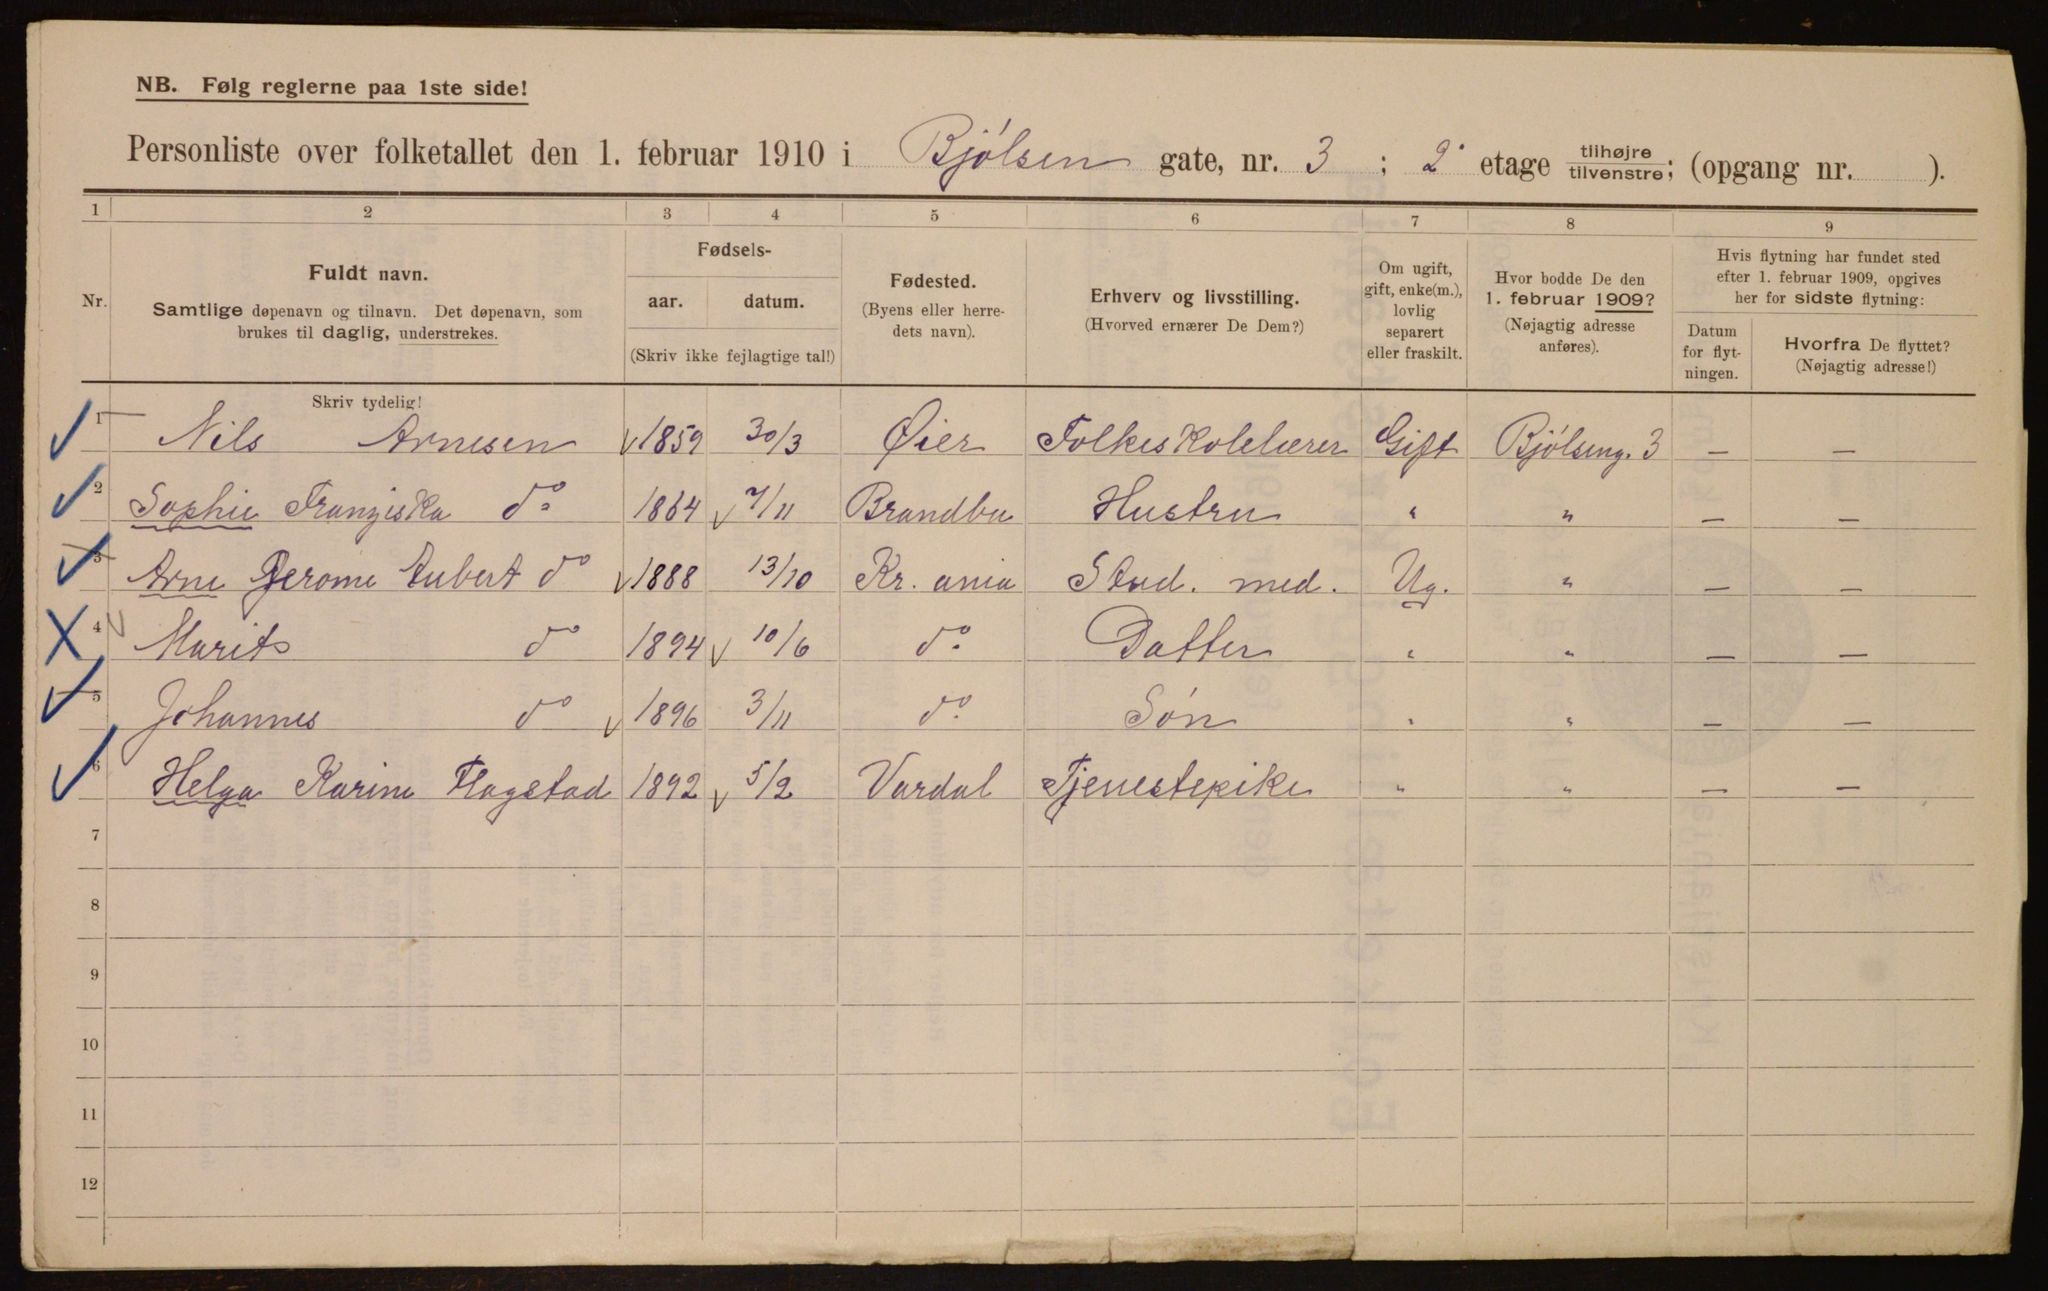 NB. Følg reglerne paa 1ste side!
Personliste over folketallet den 1. februar 1910 i Bjólsen gate, nr. 3 ; 2 etage tilhøjre/tilvenstre; (opgang nr. ).
1 2 3 4 5 6 7 8 9
Nr.
Fuldt navn.
Samtlige døpenavn og tilnavn. Det døpenavn, som
brukes til daglig, understrekes.
Skriv tydelig!
Fødsels-
aar. datum.
(Skriv ikke fejlagtige tal!)
Fødested.
(Byens eller herre-
dets navn).
Erhverv og livsstilling.
(Hvorved ernærer De Dem?)
Om ugift,
gift, enke(m.),
lovlig
separert
eller fraskilt.
Hvor bodde De den
1. februar 1909?
(Nøjagtig adresse
anføres).
Hvis flytning har fundet sted
efter 1. februar 1909, opgives
her for sidste flytning:
Datum
for flyt-
ningen.
Hvorfra De flyttet?
(Nøjagtig adresse!)
1 Nils Arnesen 1859 30/3 Øier Folkeskolelærer Gift Bjólseng. 3 — —
2 Sophie Franziska do 1864 7/11 Brandbu Hustru " " — —
3 Arne Jerome Aubert do 1888 13/10 Kr. ania Stud. med. Ug. " — —
4 Marits do 1894 10/6 do. Datter " " — —
5 Johannes do 1896 3/11 do. Són " " — —
6 Helga Karine Flagstad 1892 5/2 Vardal Tjenestepike " " — —
7
8
9
10
11
12